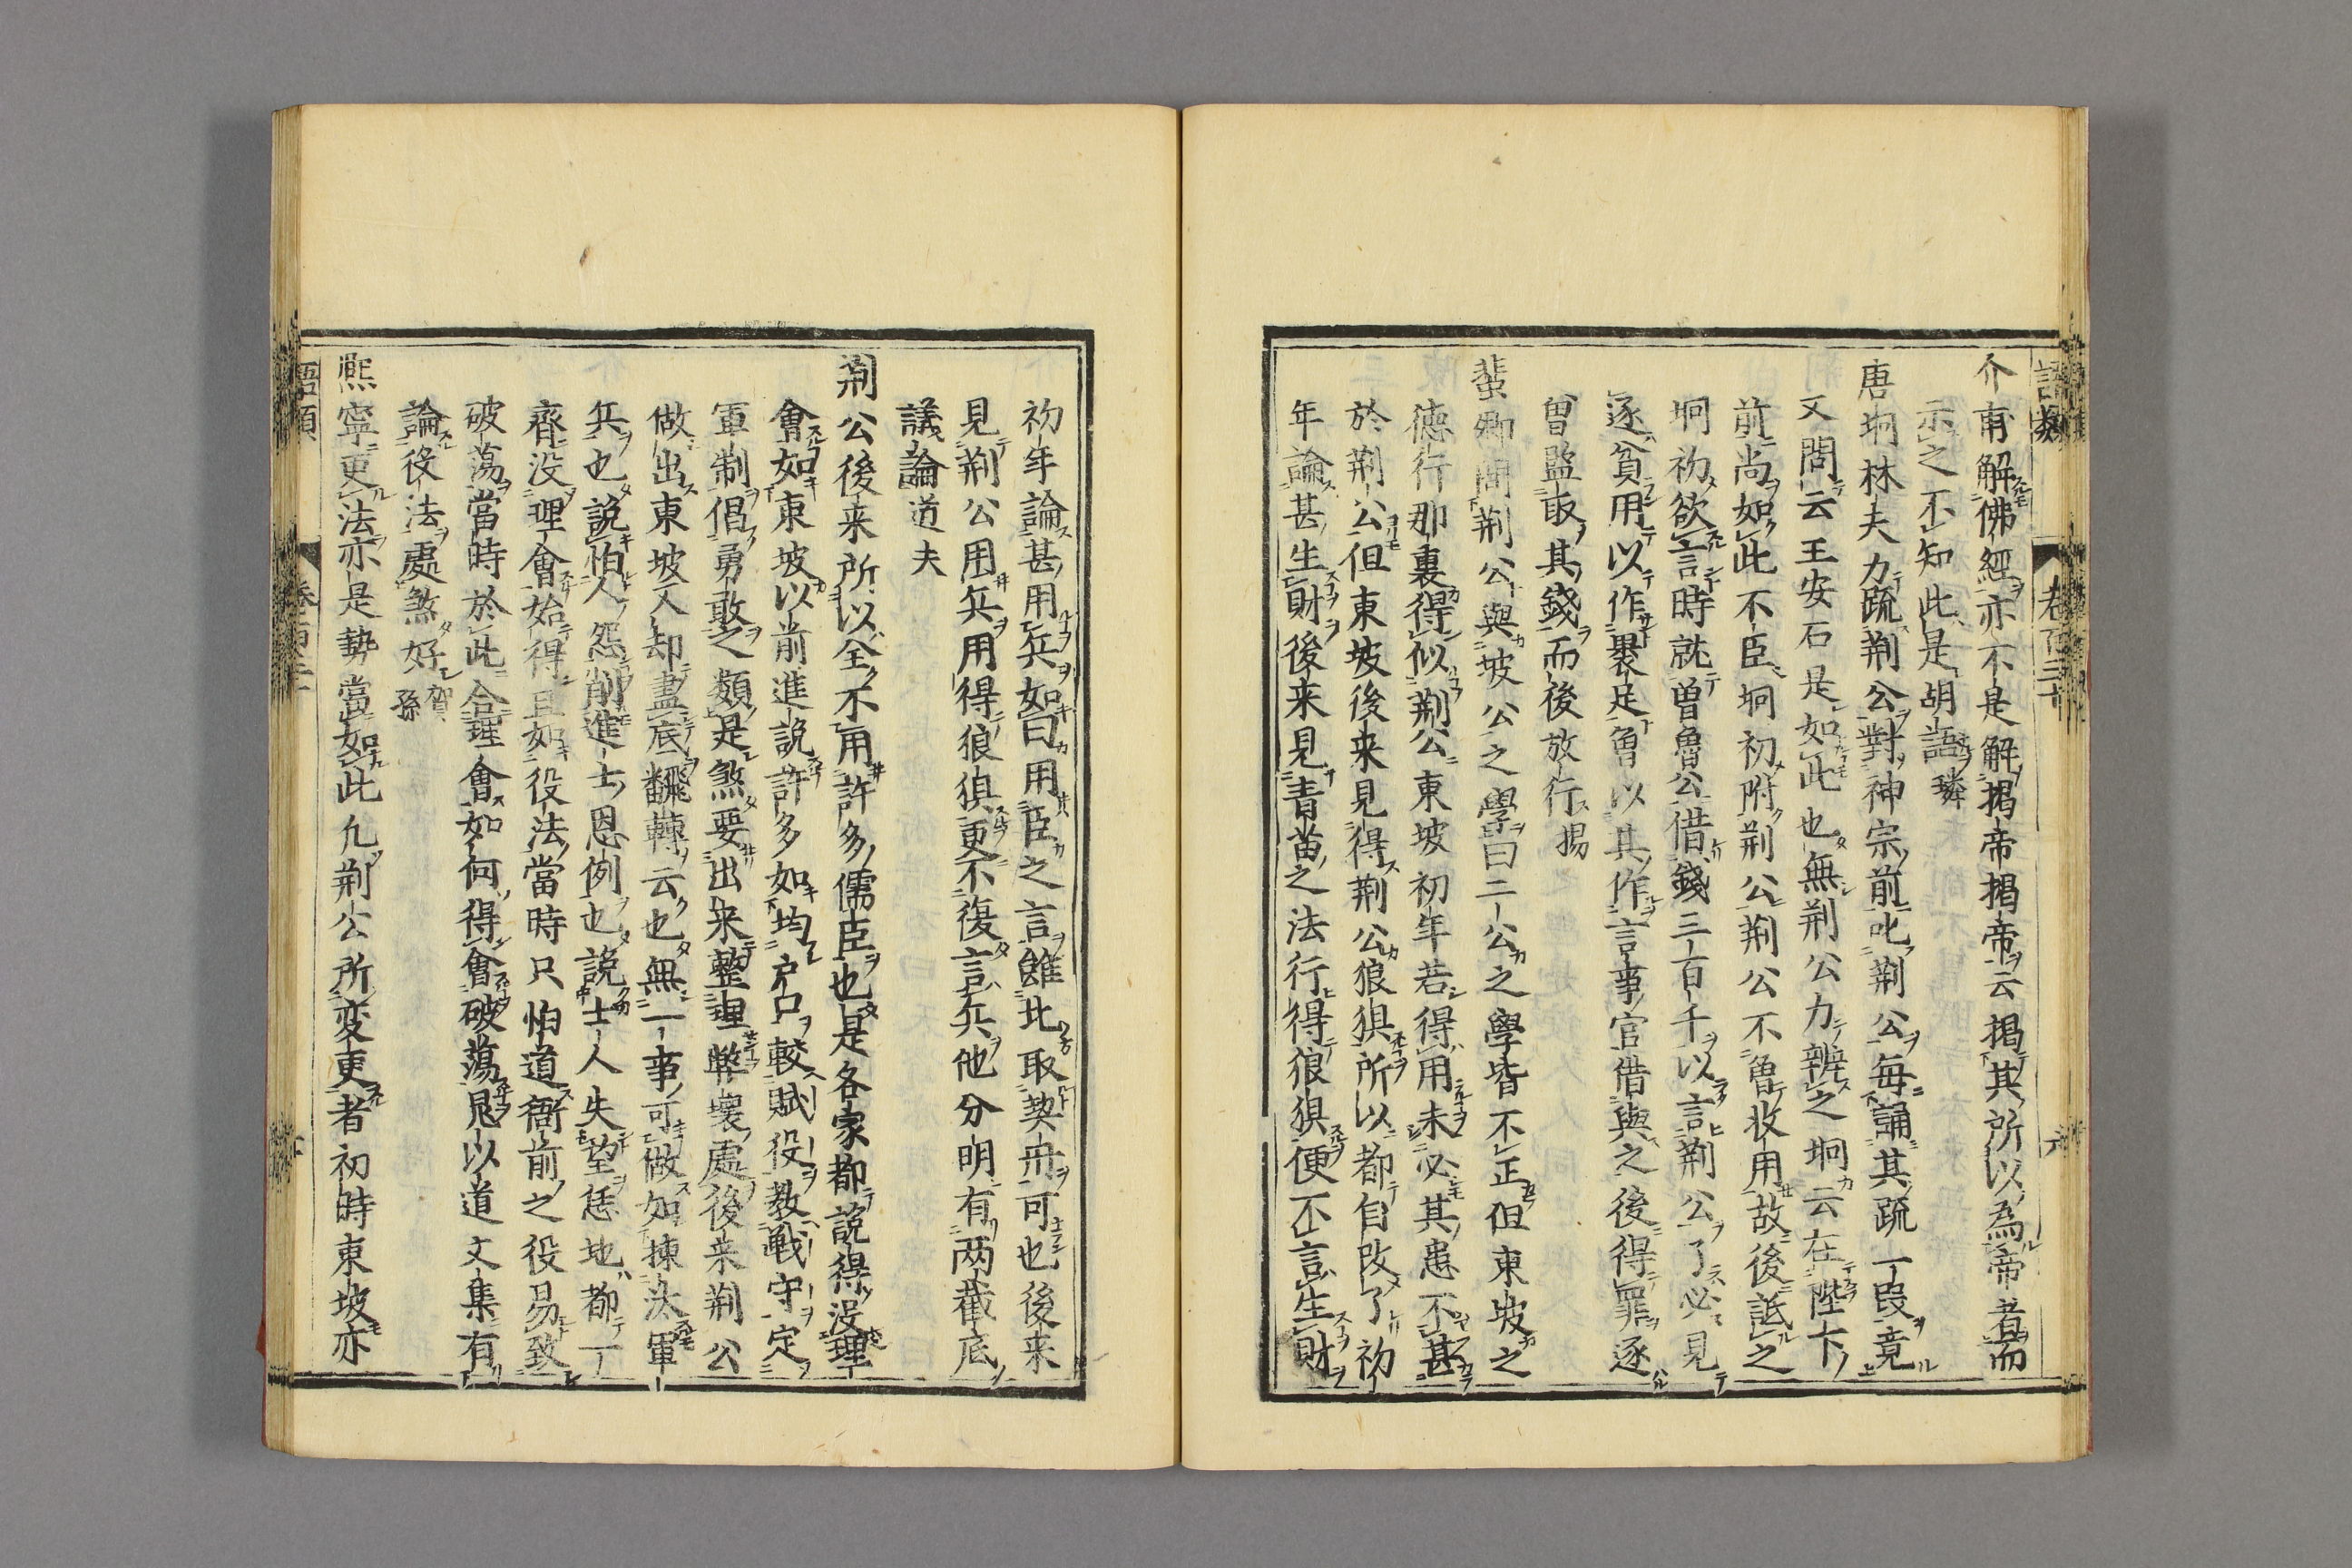 語類 卷百三十
介甫解佛經亦不是解揭帝揭帝云揭其所以為帝者而
示之不知此是胡語璘
唐坰林夫力疏荊公對神宗前叱荊公每誦其疏一段竟
又問云王安石是如此也無荊公力辨之坰云在陛下
前尚如此不臣坰初附荊公荊公不曾收用故後詆之
坰初欲言時就曾魯公借錢三百千以言荊公了必見
逐貧用以作裹足曾以其作言事官借與之後得罪逐
曾監取其錢而後放行揚
蜚卿問荊公與坡公之學曰二公之學皆不正但東坡之
德行那裏得似荊公東坡初年若得用未必其患不甚
於荊公但東坡後来見得荊公狼狽所以都自改了初
年論甚生財後来見青苗之法行得狼狽便不言生財
初年論甚用兵如曰用臣之言雖北取契丹可也後来
見荊公用兵用得狼狽更不復言兵他分明有两截底
議論道夫
荊公後来所以全不用許多儒臣也是各家都說得没理
會如東坡以前進說許多如均户口較賦役教戦守定
軍制倡勇敢之類是煞要出来整理弊壞處後来荊公
做出東坡又却盡底翻轉云也無一事可做如揀汰軍
兵也說怕人怨削進士恩例也說士人失望恁地都一
齊没理會始得且如役法當時只怕道衙前之役易致
破蕩當時於此合理會如何得會破蕩恩以道文集有
論役法處煞好賀孫
熙寧更法亦是勢當如此凢荊公所変更者初時東坡亦
語類